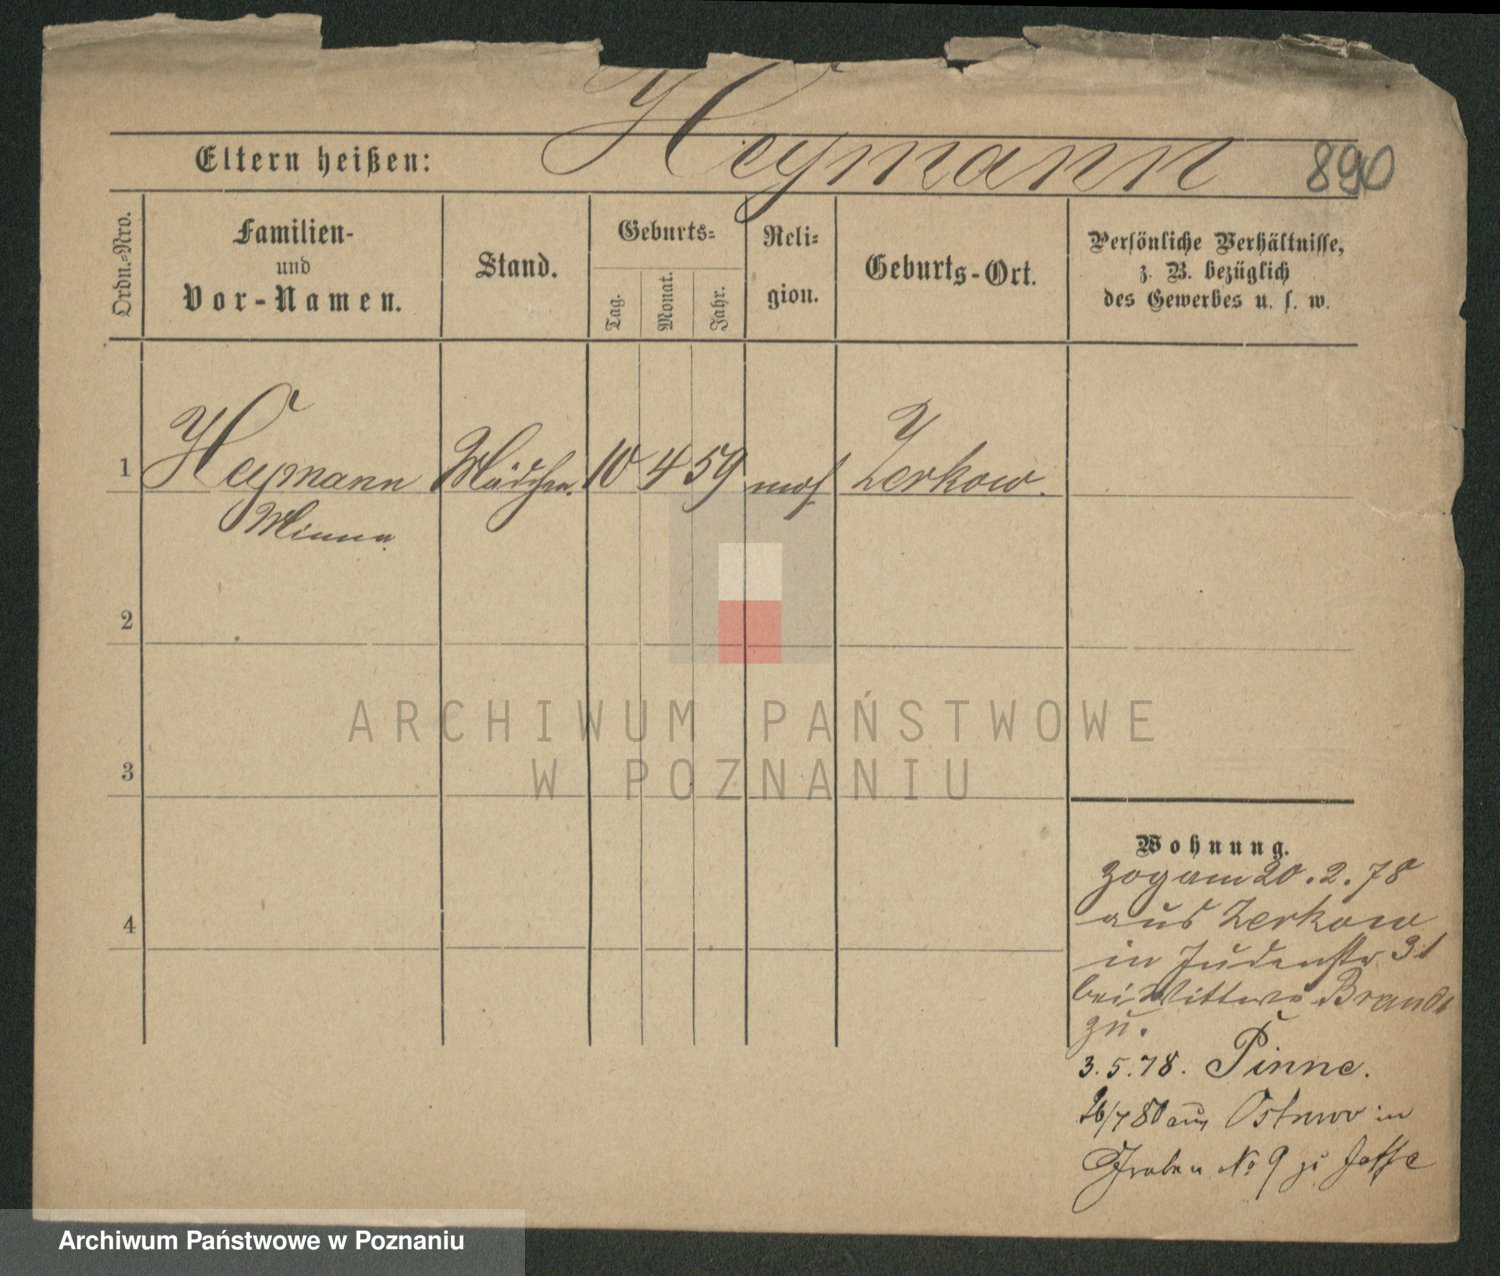 Heymann
Eltern heißen:
890
Ordn.-Nro.
Familien-
und
Vor-Namen.
Stand.
Geburts-
Tag.
Monat.
Jahr.
Reli-
gion.
Geburts-Ort.
Persönliche Verhältnisse,
z. B. bezüglich
des Gewerbes u. s. w.
1 Heymann Mädchen. 10 4 59 mos Zerkow.
Minna
2
3
4
Wohnung.
zog am 20.2.78
aus Zerkow
in Judenstr 31
bei Wittwe Brandt
zu.
3.5.78. Pinne.
26/7 80 aus Ostrowo in
Graben No 9 zu Jaffe
ARCHIWUM PAŃSTWOWE
W POZNANIU
Archiwum Państwowe w Poznaniu